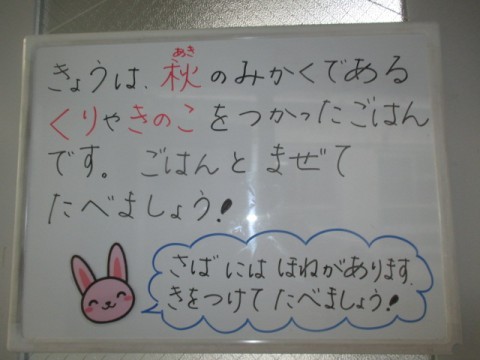 きょうは、秋のみかくである
くりやきのこをつかったごはん
です。ごはんとまぜて
たべましょう!
あき
さばにはほねがあります。
きをつけてたべましょう!